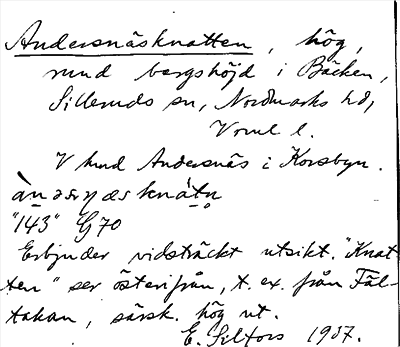 Andersnäsknatten, hög,
rund bergshöjd i Bäcken,
Silleruds sn, Nordmarks hd,
Vrml l.
V hund Andersnäs i Korsbyn.
"143" G70
Erbjuder vidsträckt utsikt. "Knat-
ten" ser österifrån, t. ex. från Fäl-
takan, särsk. hög ut.
E. Silfors 1937.